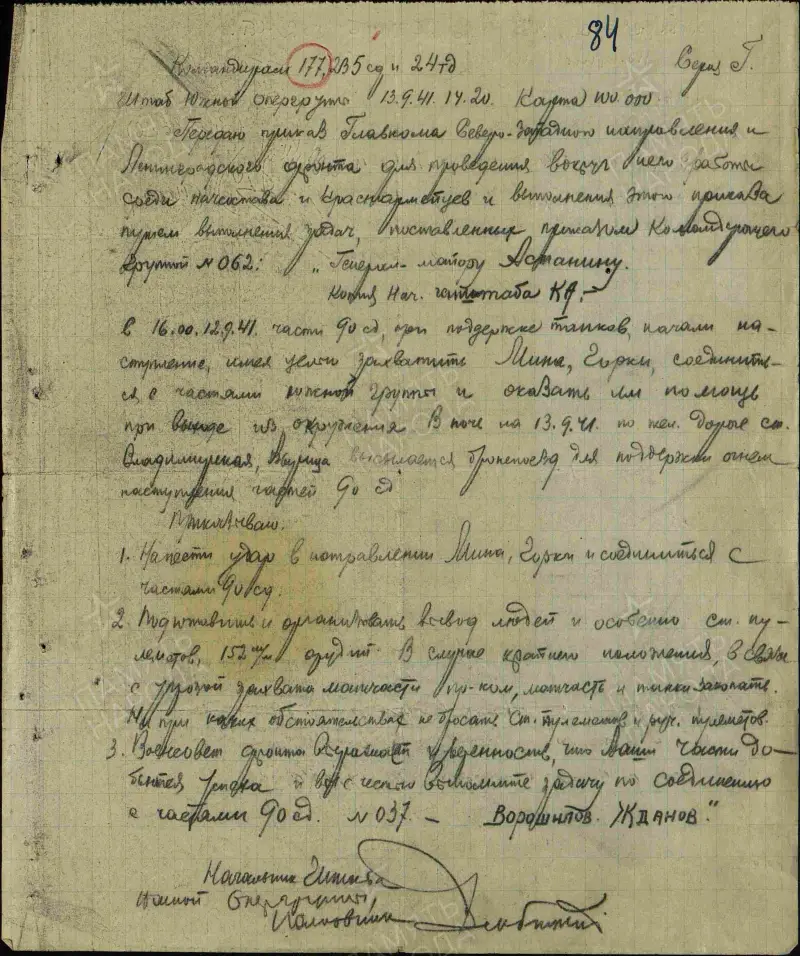 84
Командирам 177, 235 сд и 24 тд Серия Г.
Штаб Южной опергруппы 13.9.41. 14.20. Карта 100.000
Передаю приказ Главкома Северо-Западного направления и
Ленинградского фронта для проведения вокруг него работы
среди начсостава и красноармейцев и выполнения этого приказа
путем выполнения задач, поставленных приказом Командующего
группой № 062: "Генерал-майору Астанину.
Копия Нач. генштаба КА. –
В 16.00. 12.9.41. части 90 сд, при поддержке танков, начали на-
ступление, имея целью захватить Мина, Горки, соединить-
ся с частями южной группы и оказать им помощь
при выходе из окружения. В ночь на 13.9.41. по жел. дороге ст.
Владимирская, Вырица высылается бронепоезд для поддержки огнем
наступления частей 90 сд.
Приказываю:
1. Нанести удар в направлении Мина, Горки и соединиться с
частями 90 сд.
2. Подготовить и организовать вывод людей и особенно ст. пу-
леметов, 152 м/м орудий. В случае крайнего положения, в связи
с угрозой захвата матчасти пр-ком, матчасть и танки закопать.
Ни при каких обстоятельствах не бросать ст. пулеметов и руч. пулеметов.
3. Военсовет фронта выражает уверенность, что ваши части до-
бьются успеха и вы с честью выполните задачу по соединению
с частями 90 сд. № 037. – Ворошилов. Жданов."
Начальник Штаба
Южной Опергруппы
Полковник